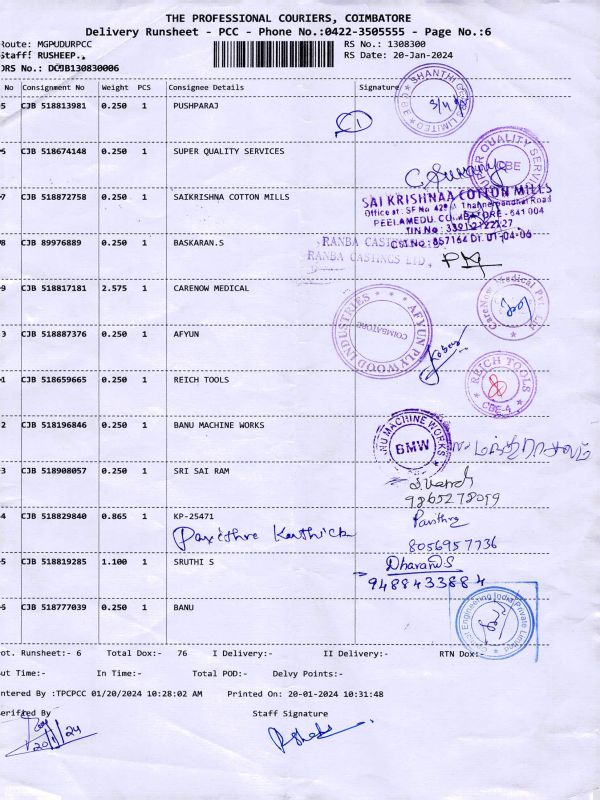 THE PROFESSIONAL COURIERS, COIMBATORE
Delivery Runsheet - PCC - Phone No.:0422-3505555 - Page No.:6
Route: MGPUDURPCC RS No.: 1308300
Staff: RUSHEEP., RS Date: 20-Jan-2024
DRS No.: DCJB130830006
No Consignment No Weight PCS Consignee Details Signature
5 CJB 518813981 0.250 1 PUSHPARAJ
SHANTHI GEARS LIMITED CBE
1
5 CJB 518674148 0.250 1 SUPER QUALITY SERVICES
SUPER QUALITY SERVICES CBE
7 CJB 518872758 0.250 1 SAIKRISHNA COTTON MILLS
SAI KRISHNAA COTTON MILLS
Office at : SF No. Thaneerpandhal Road
PEELAMEDU, COIMBATORE - 641 004
TIN No : 33912122127
CST No : 857164 Dt. 01-04-06
8 CJB 89976889 0.250 1 BASKARAN.S
RANBA CASTINGS
RANBA CASTINGS LTD.,
9 CJB 518817181 2.575 1 CARENOW MEDICAL
CareNow Medical Pvt Ltd
3 CJB 518887376 0.250 1 AFYUN
AFYUN PLYWOOD INDUSTRIES COIMBATORE
1 CJB 518659665 0.250 1 REICH TOOLS
REICH TOOLS CBE-4
2 CJB 518196846 0.250 1 BANU MACHINE WORKS
BANU MACHINE WORKS BMW
3 CJB 518908057 0.250 1 SRI SAI RAM
9865278059
4 CJB 518829840 0.865 1 KP-25471
Pavithra
8056957736
5 CJB 518819285 1.100 1 SRUTHI S
Dharani S
9488433884
5 CJB 518777039 0.250 1 BANU
Engineering India Private Limited
ot. Runsheet:- 6 Total Dox:- 76 I Delivery:- II Delivery:- RTN Dox:-
ut Time:- In Time:- Total POD:- Delvy Points:-
ntered By :TPCPCC 01/20/2024 10:28:02 AM Printed On: 20-01-2024 10:31:48
erified By Staff Signature